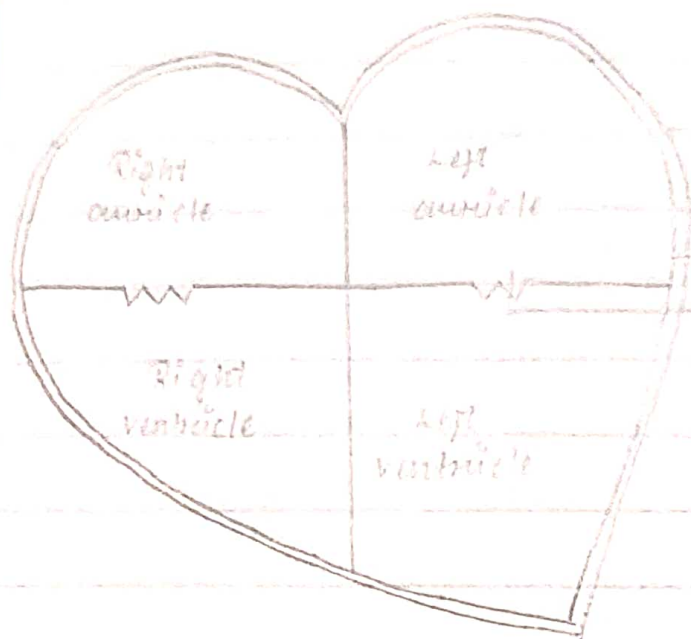 Right
auricle
Left
auricle
Right
ventricle
Left
ventricle